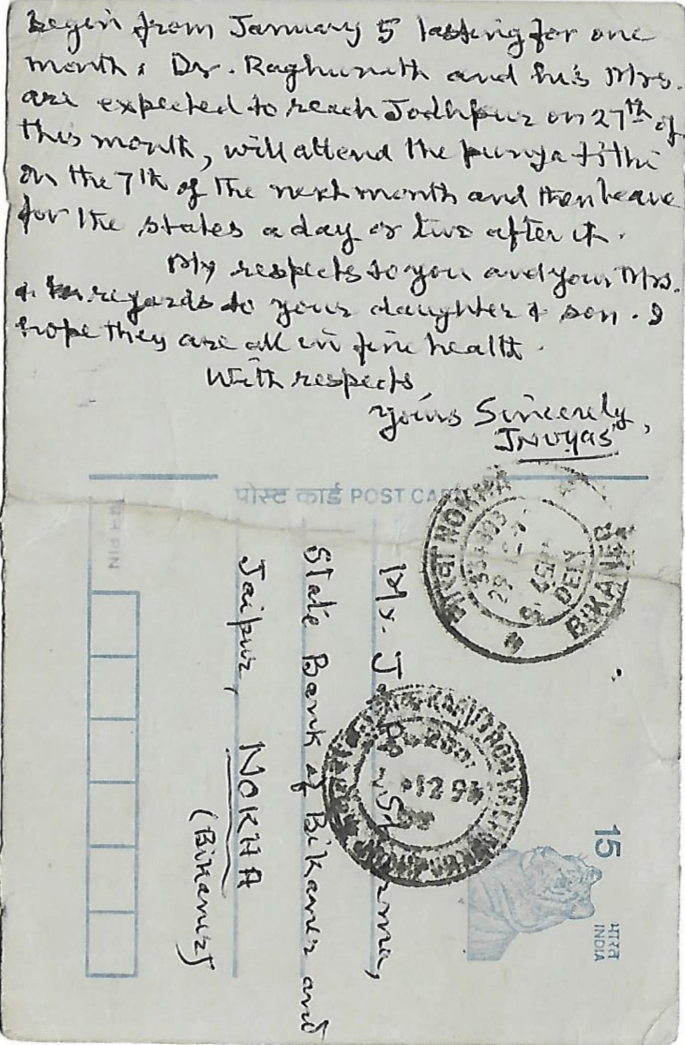 begin from January 5 lasting for one
month. Dr. Raghunath and his Mrs.
are expected to reach Jodhpur on 27th of
this month, will attend the punya tithi
on the 7th of the next month and then leave
for the states a day or two after it.
My respects to you and your Mrs.
& regards to your daughter & son. I
hope they are all in fine health.
With respects,
Yours Sincerely,
JNVyas
पोस्ट कार्ड POST CARD
पिन PIN
NOKHA
DELY
BIKANER
Mr. J.
State Bank of Bikaner and
Jaipur, NOKHA
(Bikaner)
12 94
15
भारत
INDIA